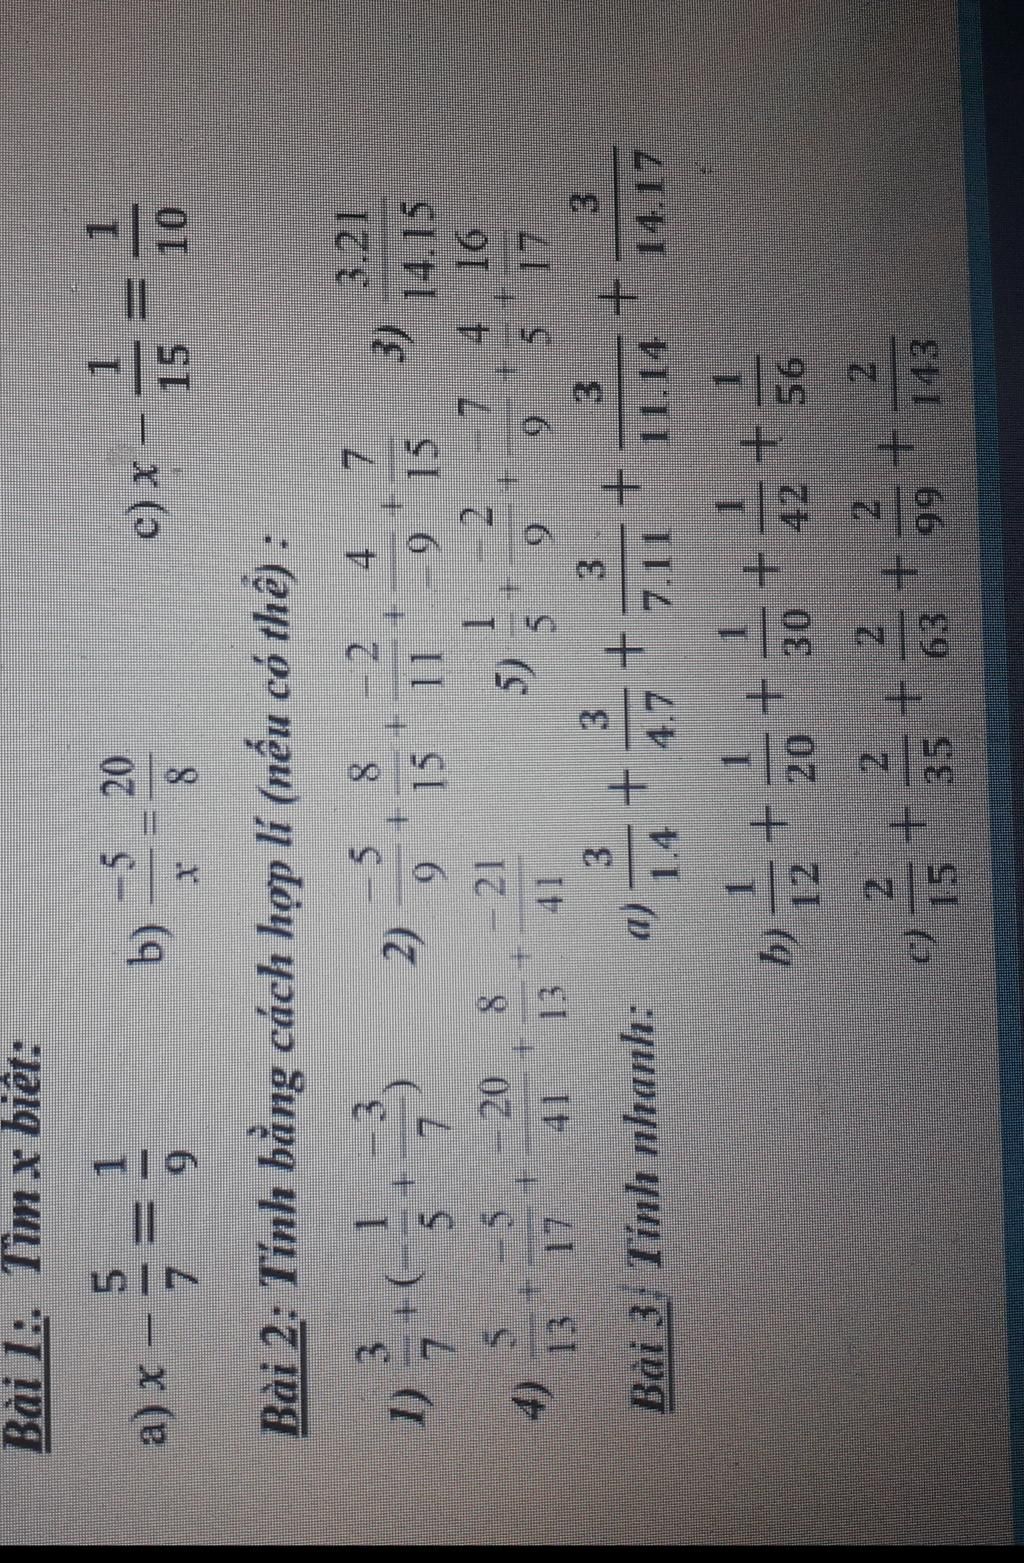 Bài 1:. Tìm x biết:
a) x − 5/7 = 1/9 b) −5/x = 20/8 c) x − 1/15 = 1/10
Bài 2: Tính bằng cách hợp lí (nếu có thể) :
1) 3/7 + (−1/5 + −3/7) 2) −5/9 + 8/15 + −2/11 + 4/−9 + 7/15 3) 3.21/14.15
4) 5/13 + −5/17 + −20/41 + 8/13 + −21/41 5) 1/5 + −2/9 + −7/9 + 4/5 + 16/17
Bài 3: Tính nhanh: a) 3/1.4 + 3/4.7 + 3/7.11 + 3/11.14 + 3/14.17
b) 1/12 + 1/20 + 1/30 + 1/42 + 1/56
c) 2/15 + 2/35 + 2/63 + 2/99 + 2/143